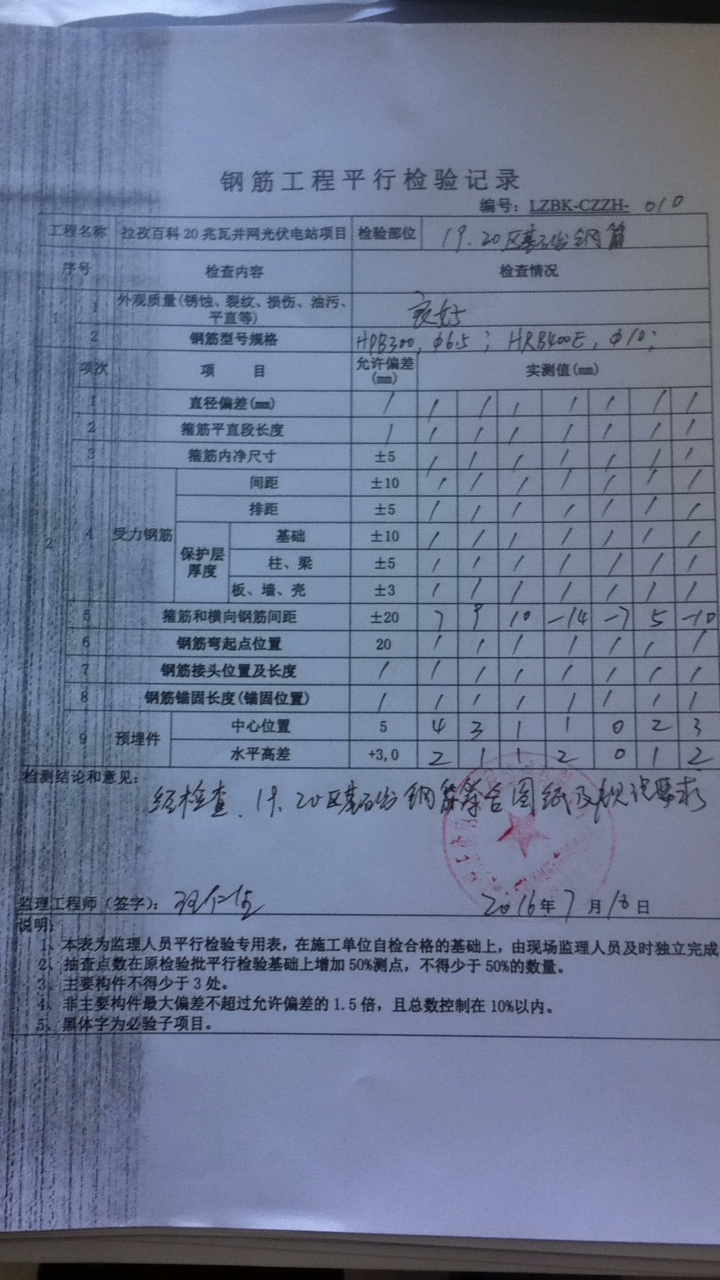 钢筋工程平行检验记录
编号：LZBK-CZZH- 010
工程名称 拉孜百科20兆瓦并网光伏电站项目 检验部位 19.20区基础钢筋
序号 检查内容 检查情况
1 1 外观质量(锈蚀、裂纹、损伤、油污、平直等) 良好
2 钢筋型号规格 HPB300, φ6.5; HRB400E, φ10;
项次 项 目 允许偏差(mm) 实测值(mm)
2
1 直径偏差(mm) / / / / / / / /
2 箍筋平直段长度 / / / / / / / /
3 箍筋内净尺寸 ±5 / / / / / / /
4 受力钢筋 间距 ±10 / / / / / / /
排距 ±5 / / / / / / /
保护层厚度 基础 ±10 / / / / / / /
柱、梁 ±5 / / / / / / /
板、墙、壳 ±3 / / / / / / /
5 箍筋和横向钢筋间距 ±20 7 9 10 -14 -7 5 -10
6 钢筋弯起点位置 20 / / / / / / /
7 钢筋接头位置及长度 / / / / / / / /
8 钢筋锚固长度(锚固位置) / / / / / / / /
9 预埋件 中心位置 5 4 3 1 1 0 2 3
水平高差 +3,0 2 1 1 2 0 1 2
检测结论和意见：
经检查、19.20区基础钢筋符合图纸及规范要求
监理工程师（签字）： 2016年7月18日
说明：
1、本表为监理人员平行检验专用表，在施工单位自检合格的基础上，由现场监理人员及时独立完成
2、抽查点数在原检验批平行检验基础上增加50%测点，不得少于50%的数量。
3、主要构件不得少于3处。
4、非主要构件最大偏差不超过允许偏差的1.5倍，且总数控制在10%以内。
5、黑体字为必验子项目。